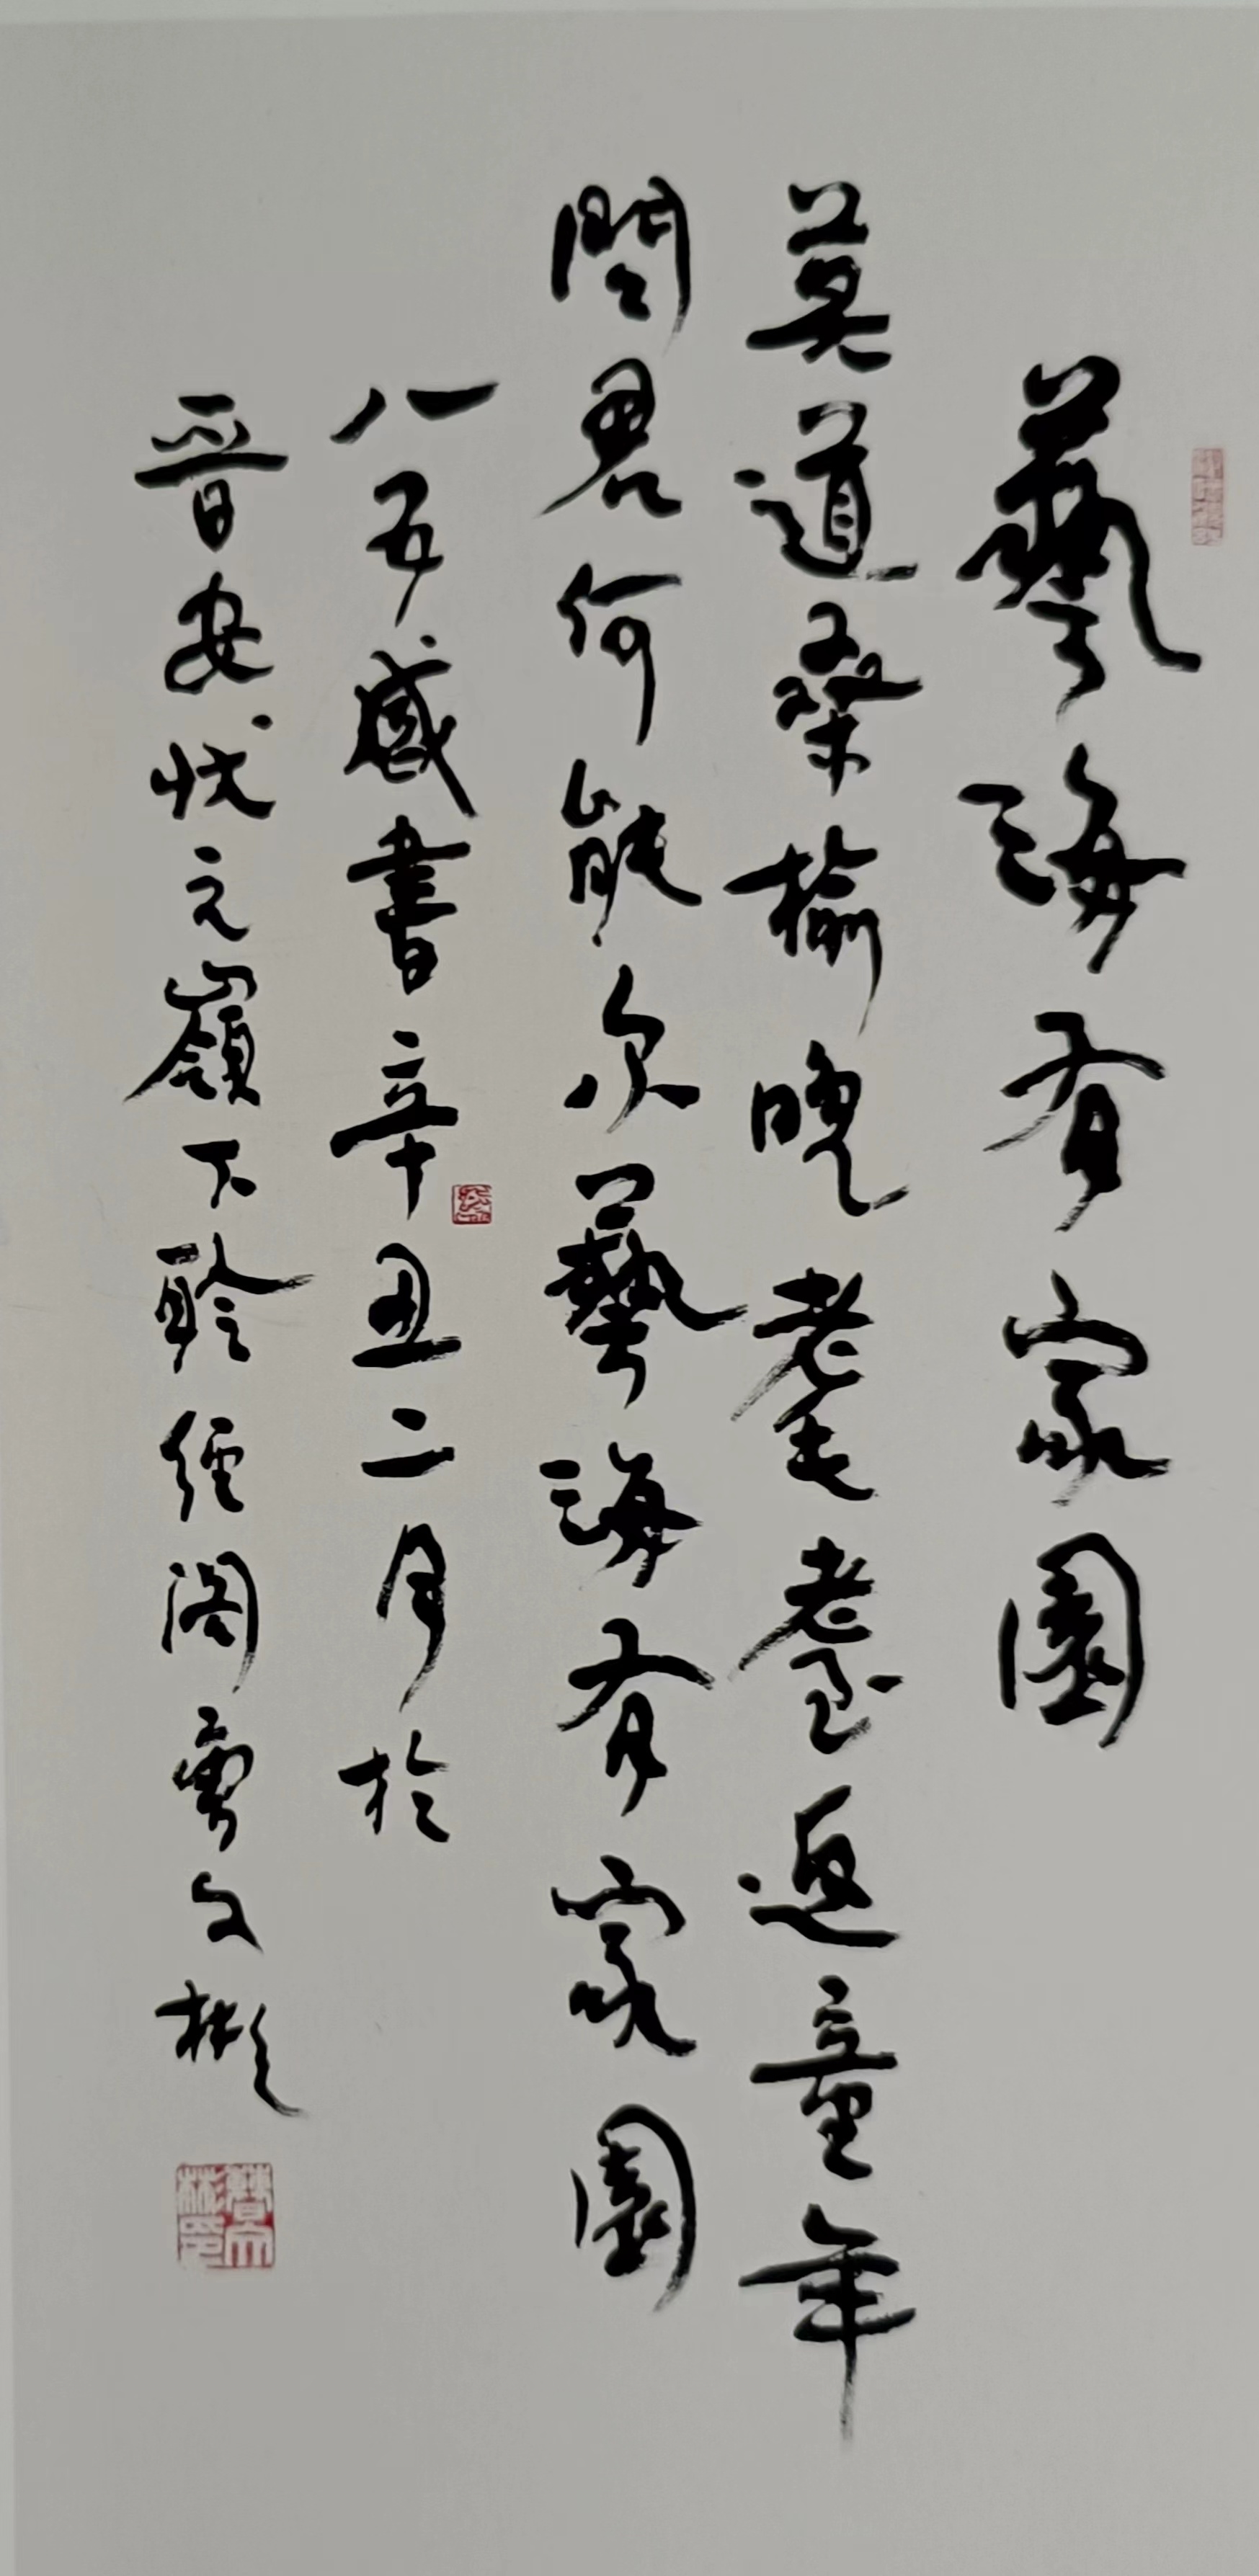 藝海有家園
莫道桑榆晚耄耋返童年
問君何能尔藝海有家園
八五感書辛丑二月於
晋安状元嶺下聆經閣曹文彬